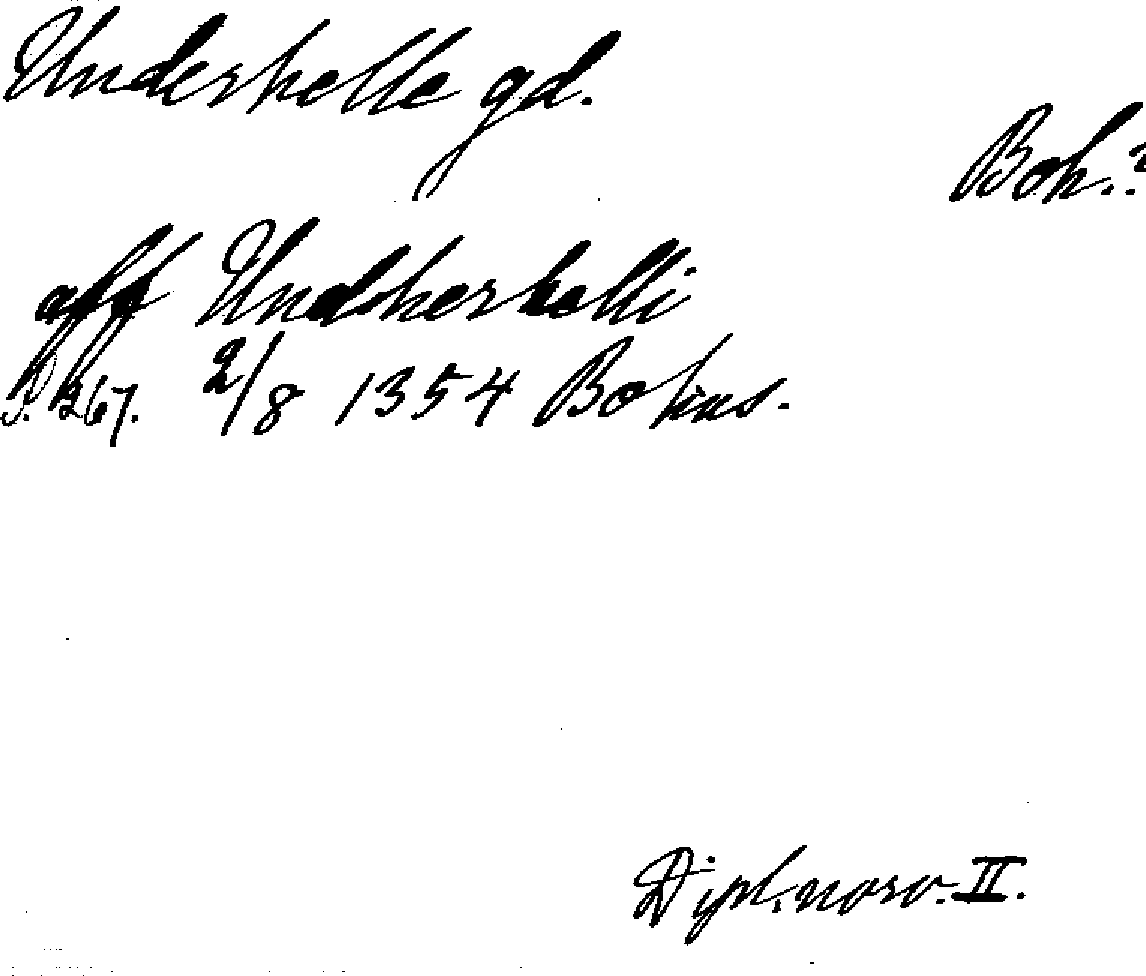 Underhelle gd.
Boh.?
aff Undherhelli
2/8 1354 Bohus.
Dipl. norv. II.